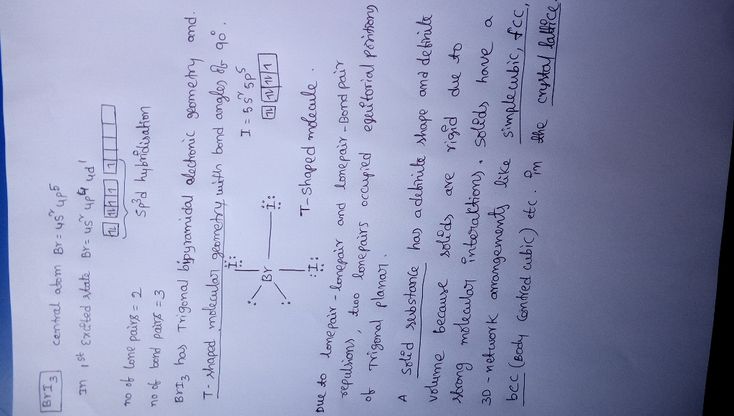 BrI₃ central atom Br = 4s² 4p⁵
In 1st Excited state Br = 4s² 4p⁴ 4d¹
no of lone pairs = 2
sp³d hybridisation
no of bond pairs = 3
BrI₃ has Trigonal bipyramidal electronic geometry and.
T-shaped molecular geometry with bond angles of 90°.
I
I = 5s² 5p⁵
Br
I
I
T-shaped molecule.
Due to lonepair-lonepair and lonepair-Bond pair
repulsions, two lonepairs occupied equitorial positions
of Trigonal planar.
A Solid substance has a definite shape and definite
volume because solids are rigid due to
strong molecular interaktions. Solids have a
3D-network arrangements like simplecubic, fcc,
bcc (Body Centred cubic) etc. in the crystal lattice.